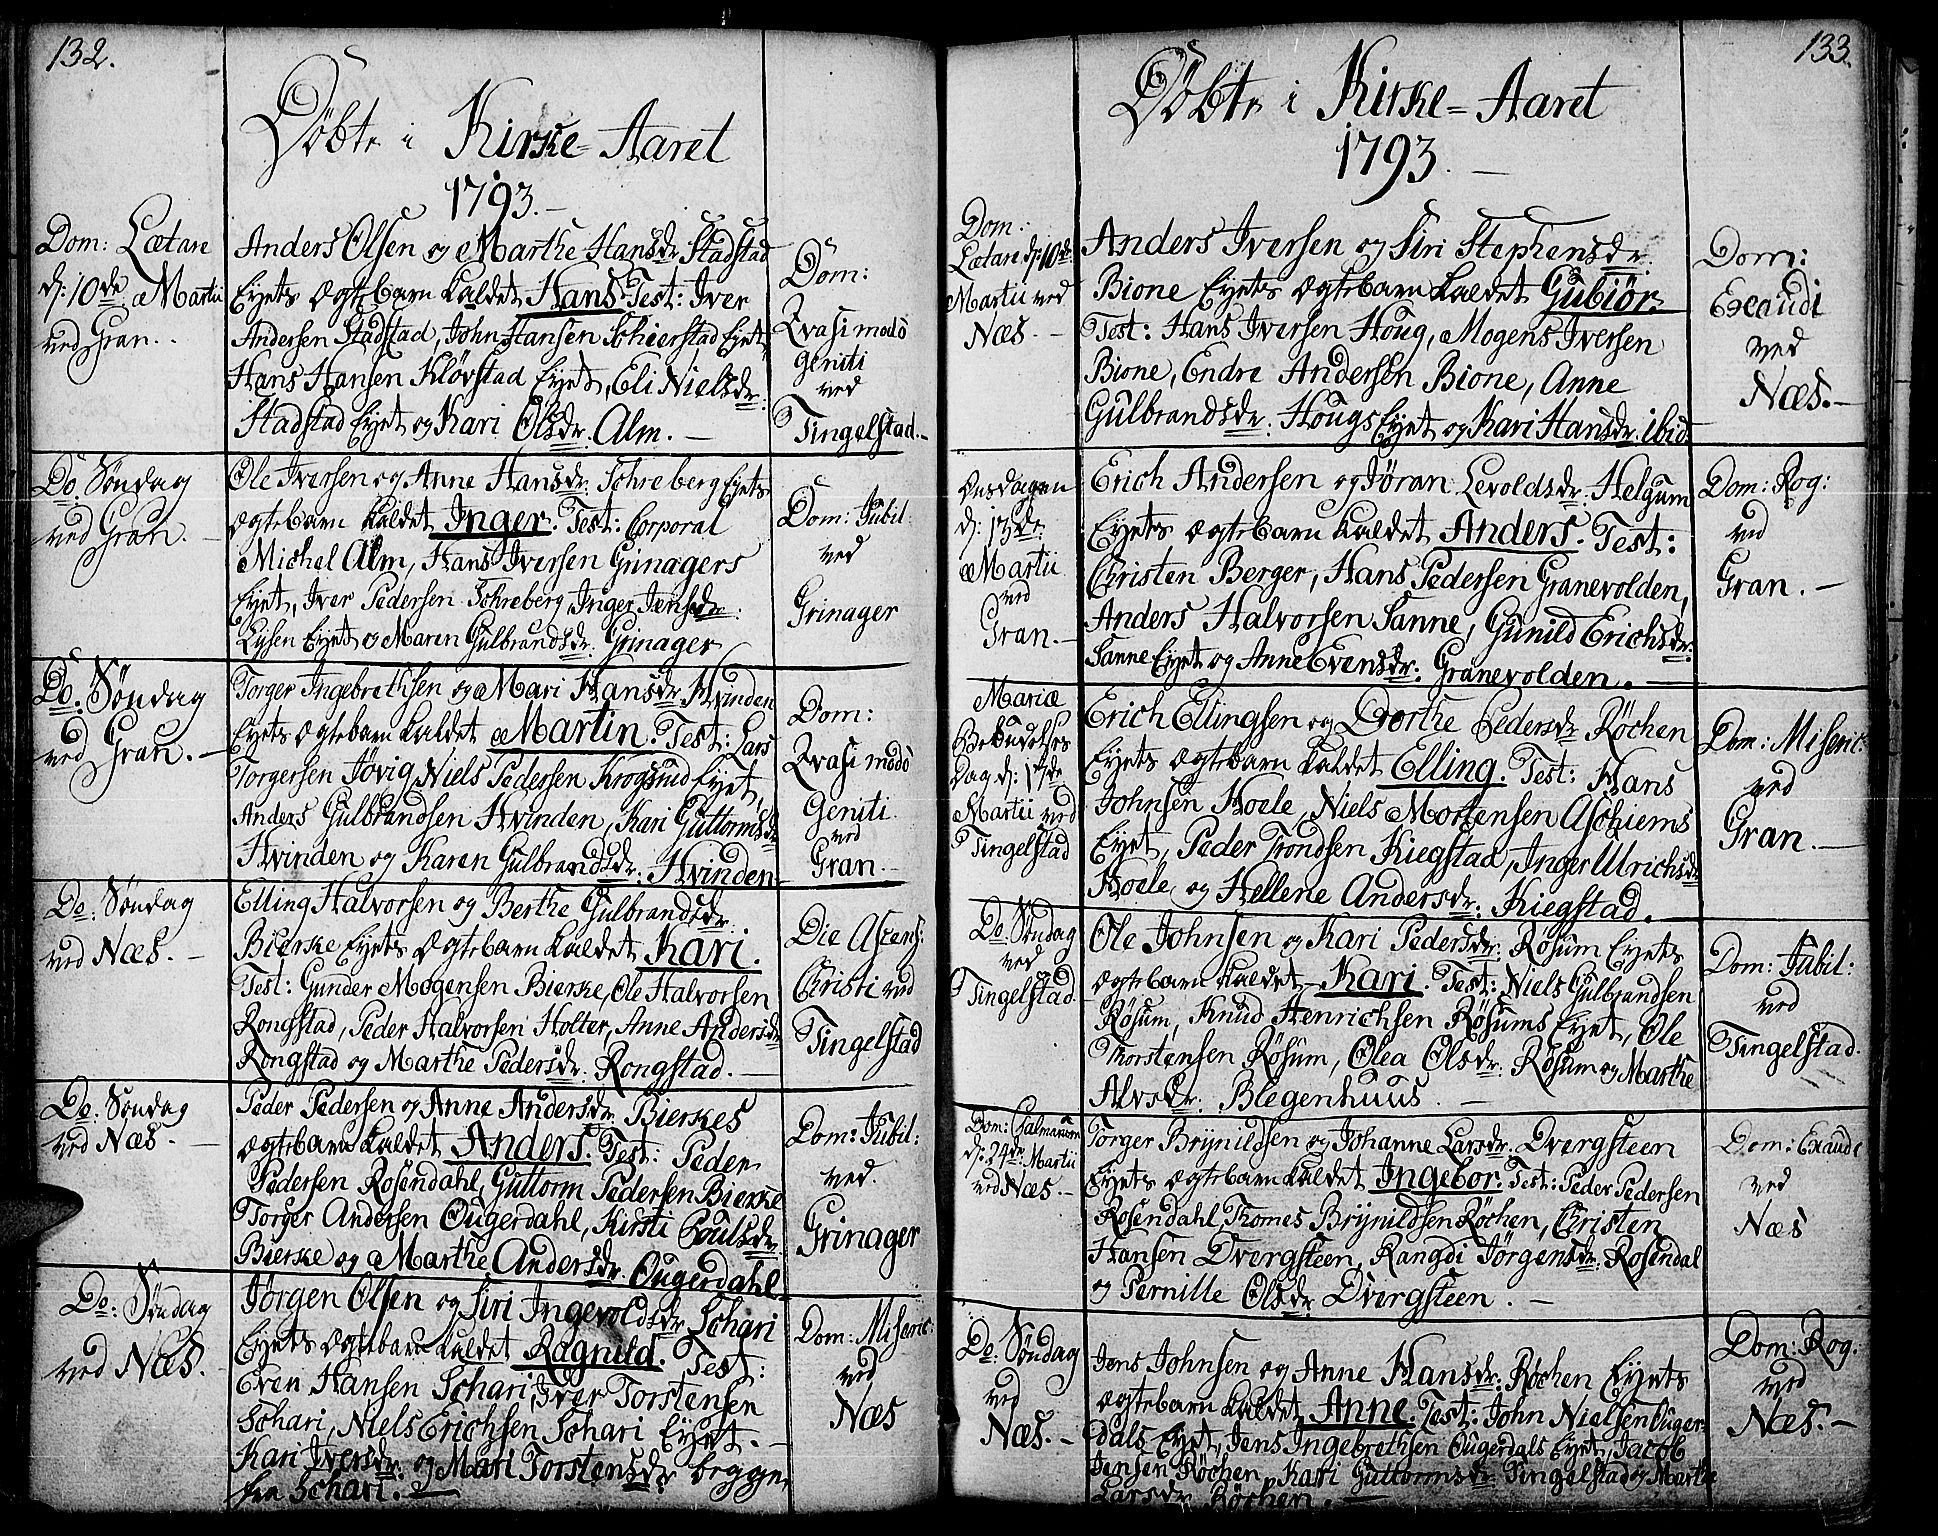 132.
Döbte i Kirke-Aaret
1793.
Dom: Lætare
d: 10de Martii
ved Gran.
Anders Olsen og Marthe Hansdr: Stadstad
Eyets ægtebarn kaldet Hans. Test: Iver
Andersen Stadstad, John Hansen Schierstad Eyet,
Hans Hansen Klövstad Eyet, Eli Nielsdr:
Stadstad Eyet og Kari Olsdr: Alm. —
Dom:
Qvasimodo
Geniti
ved
Tingelstad. —
Do: Söndag
ved Gran. —
Ole Iversen og Anne Hansdr: Sohreberg Eyets
ægtebarn kaldet Inger. Test: Corporal
Michel Alm, Hans Iversen Grinagers
Eyet, Iver Pedersen Sohreberg, Inger Jensdr:
Lysen Eyet og Maren Gulbrandsdr: Grinager
Dom: Jubil:
ved
Grinager
Do: Söndag
ved Gran. —
Torger Ingebrethsen og Mari Hansdr: Hvinden
Eyets ægtebarn kaldet Martin. Test: Lars
Torgersen Jövig, Niels Pedersen Krogsrud Eyet,
Anders Gulbrandsen Hvinden, Kari Guttormsdr
Hvinden og Karen Gulbrandsdr: Hvinden
Dom:
Qvasimodo
Geniti
ved
Gran. —
Do: Söndag
ved Næs. —
Elling Halvorsen og Berthe Gulbrandsdr:
Bierke Eyets ægtebarn kaldet Kari.
Test: Gunder Mogensen Bierke, Ole Halvorsen
Rongstad, Peder Halvorsen Holter, Anne Andersdr
Rongstad og Marthe Pedersdr: Rongstad. —
Die Ascens:
Christi ved
Tingelstad
Do: Söndag
ved Næs. —
Peder Pedersen og Anne Andersdr Bierkes
ægtebarn kaldet Anders. Test: Peder
Pedersen Rosendahl, Guttorm Pedersen Bierke
Torger Andersen Ougerdahl, Kirsti Poulsdr
Bierke og Marthe Andersdr: Ougerdahl.
Dom: Jubil:
ved.
Grinager
Do: Söndag
ved Næs. —
Jörgen Olsen og Siri Ingevoldsdr Schari
Eyets ægtebarn kaldet Ragnild. Test:
Even Hansen Schari, Iver Torstensen
Schari, Niels Erichsen Schari Eyet. —
Kari Iversdr: og Mari Torstensdr begge
fra Schari. —
Dom: Miseric:
ved
Næs
133.
Döbte i Kirke-Aaret
1793. —
Dom:
Lætare d: 10de
Martii ved
Næs. —
Anders Iversen og Siri Stephensdr:
Bione Eyets ægtebarn kaldet Gubiör.
Test: Hans Iversen Houg, Mogens Iversen
Bione, Endre Andersen Bione, Anne
Gulbrandsdr: Hougs Eyet og Kari Hansdr: ibid
Dom:
Exaudi
ved
Næs. —
Onsdagen
d: 13de
Martii
ved
Gran. —
Erich Andersen og Jöran Levoldsdr: Helgum
Eyets ægtebarn kaldet Anders. Test:
Christen Berger, Hans Pedersen Granevolden,
Anders Halvorsen Sanne, Gunild Erichsdr:
Sanne Eyet og Anne Evensdr: Granevolden. —
Dom: Rog:
ved
Gran. —
Mariæ
Bekiudelses
Dag d: 17de
Martii ved
Tingelstad
Erich Ellingsen og Dorthe Pedersdr Röchen
Eyets ægtebarn kaldet Elling. Test: Hans
Johnsen Hoele, Niels Mortensen Aschiems
Eyet, Peder Trondsen Kiegstad, Inger Ulrichsdr
Hoele, og Hellene Andersdr: Kiegstad. —
Dom: Miseric:
ved
Gran. —
Do: Söndag
ved
Tingelstad
Ole Johnsen og Kari Pedersdr: Rösum Eyets
ægtebarn kaldet Kari. Test: Niels Gulbrandsen
Rösum, Knud Henrichsen Rösums Eyet, Ole
Thorstensen Rösum, Olea Olsdr: Rösum og Marthe
Alvsdr: Blegenhuus. —
Dom: Jubil:
ved
Tingelstad.
Dom: Palmarum
d: 24de Martii
ved Næs. —
Torger Brynildsen og Johanne Larsdr: Dvergsteen
Eyets ægtebarn kaldet Ingebor. Test: Peder Pedersen
Rosendahl, Thomes Brynildsen Röchen, Christen
Hansen Dvergsteen, Rangdi Jörgensdr: Rosendal
og Pernille Olsdr: Dvergsteen. —
Dom: Exaudi
ved
Næs
Do: Söndag
ved
Næs. —
Jens Johnsen og Anne Hansdr: Röchen Eyets
ægtebarn kaldet Anne. Test: John Nielsen Ouger-
dals Eyet, Jens Ingebrethsen Ougerdals Eyet, Jacob
Jensen Röchen, Kari Guttormsdr Tingelstad og Marthe
Larsdr Röchen. —
Dom: Rog:
ved
Næs. —